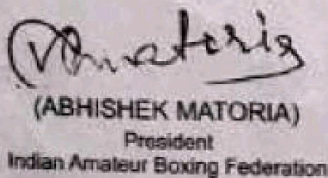 (ABHISHEK MATORIA)
President
Indian Amateur Boxing Federation